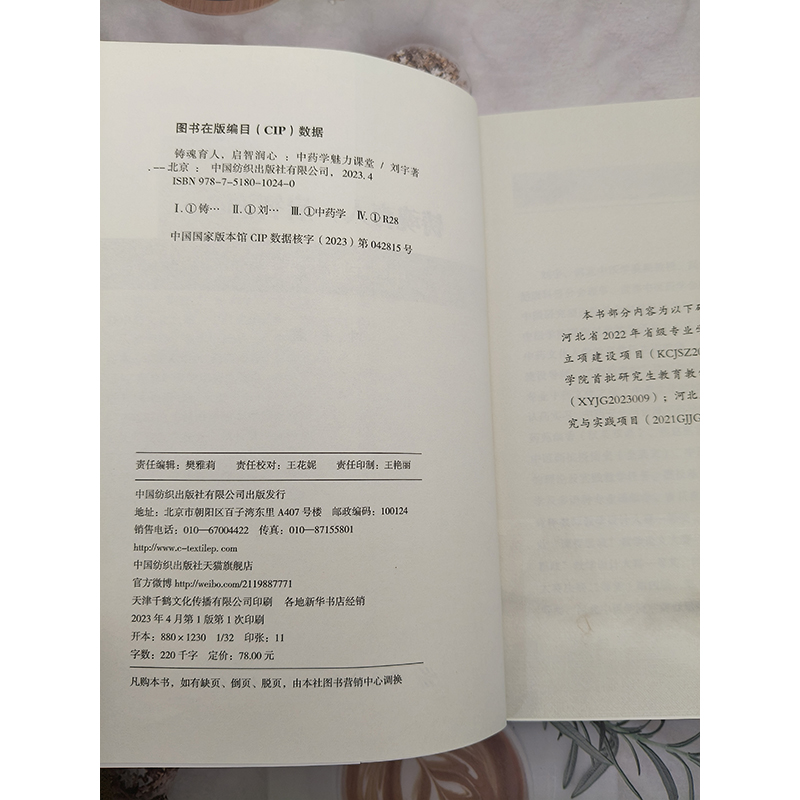 图书在版编目(CIP)数据
铸魂育人,启智润心:中药学魅力课堂/刘宇著
.--北京:中国纺织出版社有限公司,2023.4
ISBN 978-7-5180-1024-0
Ⅰ.①铸… Ⅱ.①刘… Ⅲ.①中药学 Ⅳ.①R28
中国国家版本馆CIP数据核字(2023)第042815号
责任编辑:樊雅莉 责任校对:王花妮 责任印制:王艳丽
中国纺织出版社有限公司出版发行
地址:北京市朝阳区百子湾东里A407号楼 邮政编码:100124
销售电话:010—67004422 传真:010—87155801
http://www.c-textilep.com
中国纺织出版社天猫旗舰店
官方微博http://weibo.com/2119887771
天津千鹤文化传播有限公司印刷 各地新华书店经销
2023年4月第1版第1次印刷
开本:880×1230 1/32 印张:11
字数:220千字 定价:78.00元
凡购本书,如有缺页、倒页、脱页,由本社图书营销中心调换
本书部分内容为以下研
河北省2022年省级专业学
立项建设项目(KCJSZ20
学院首批研究生教育教
(XYJG2023009);河北
究与实践项目(2021GJJG